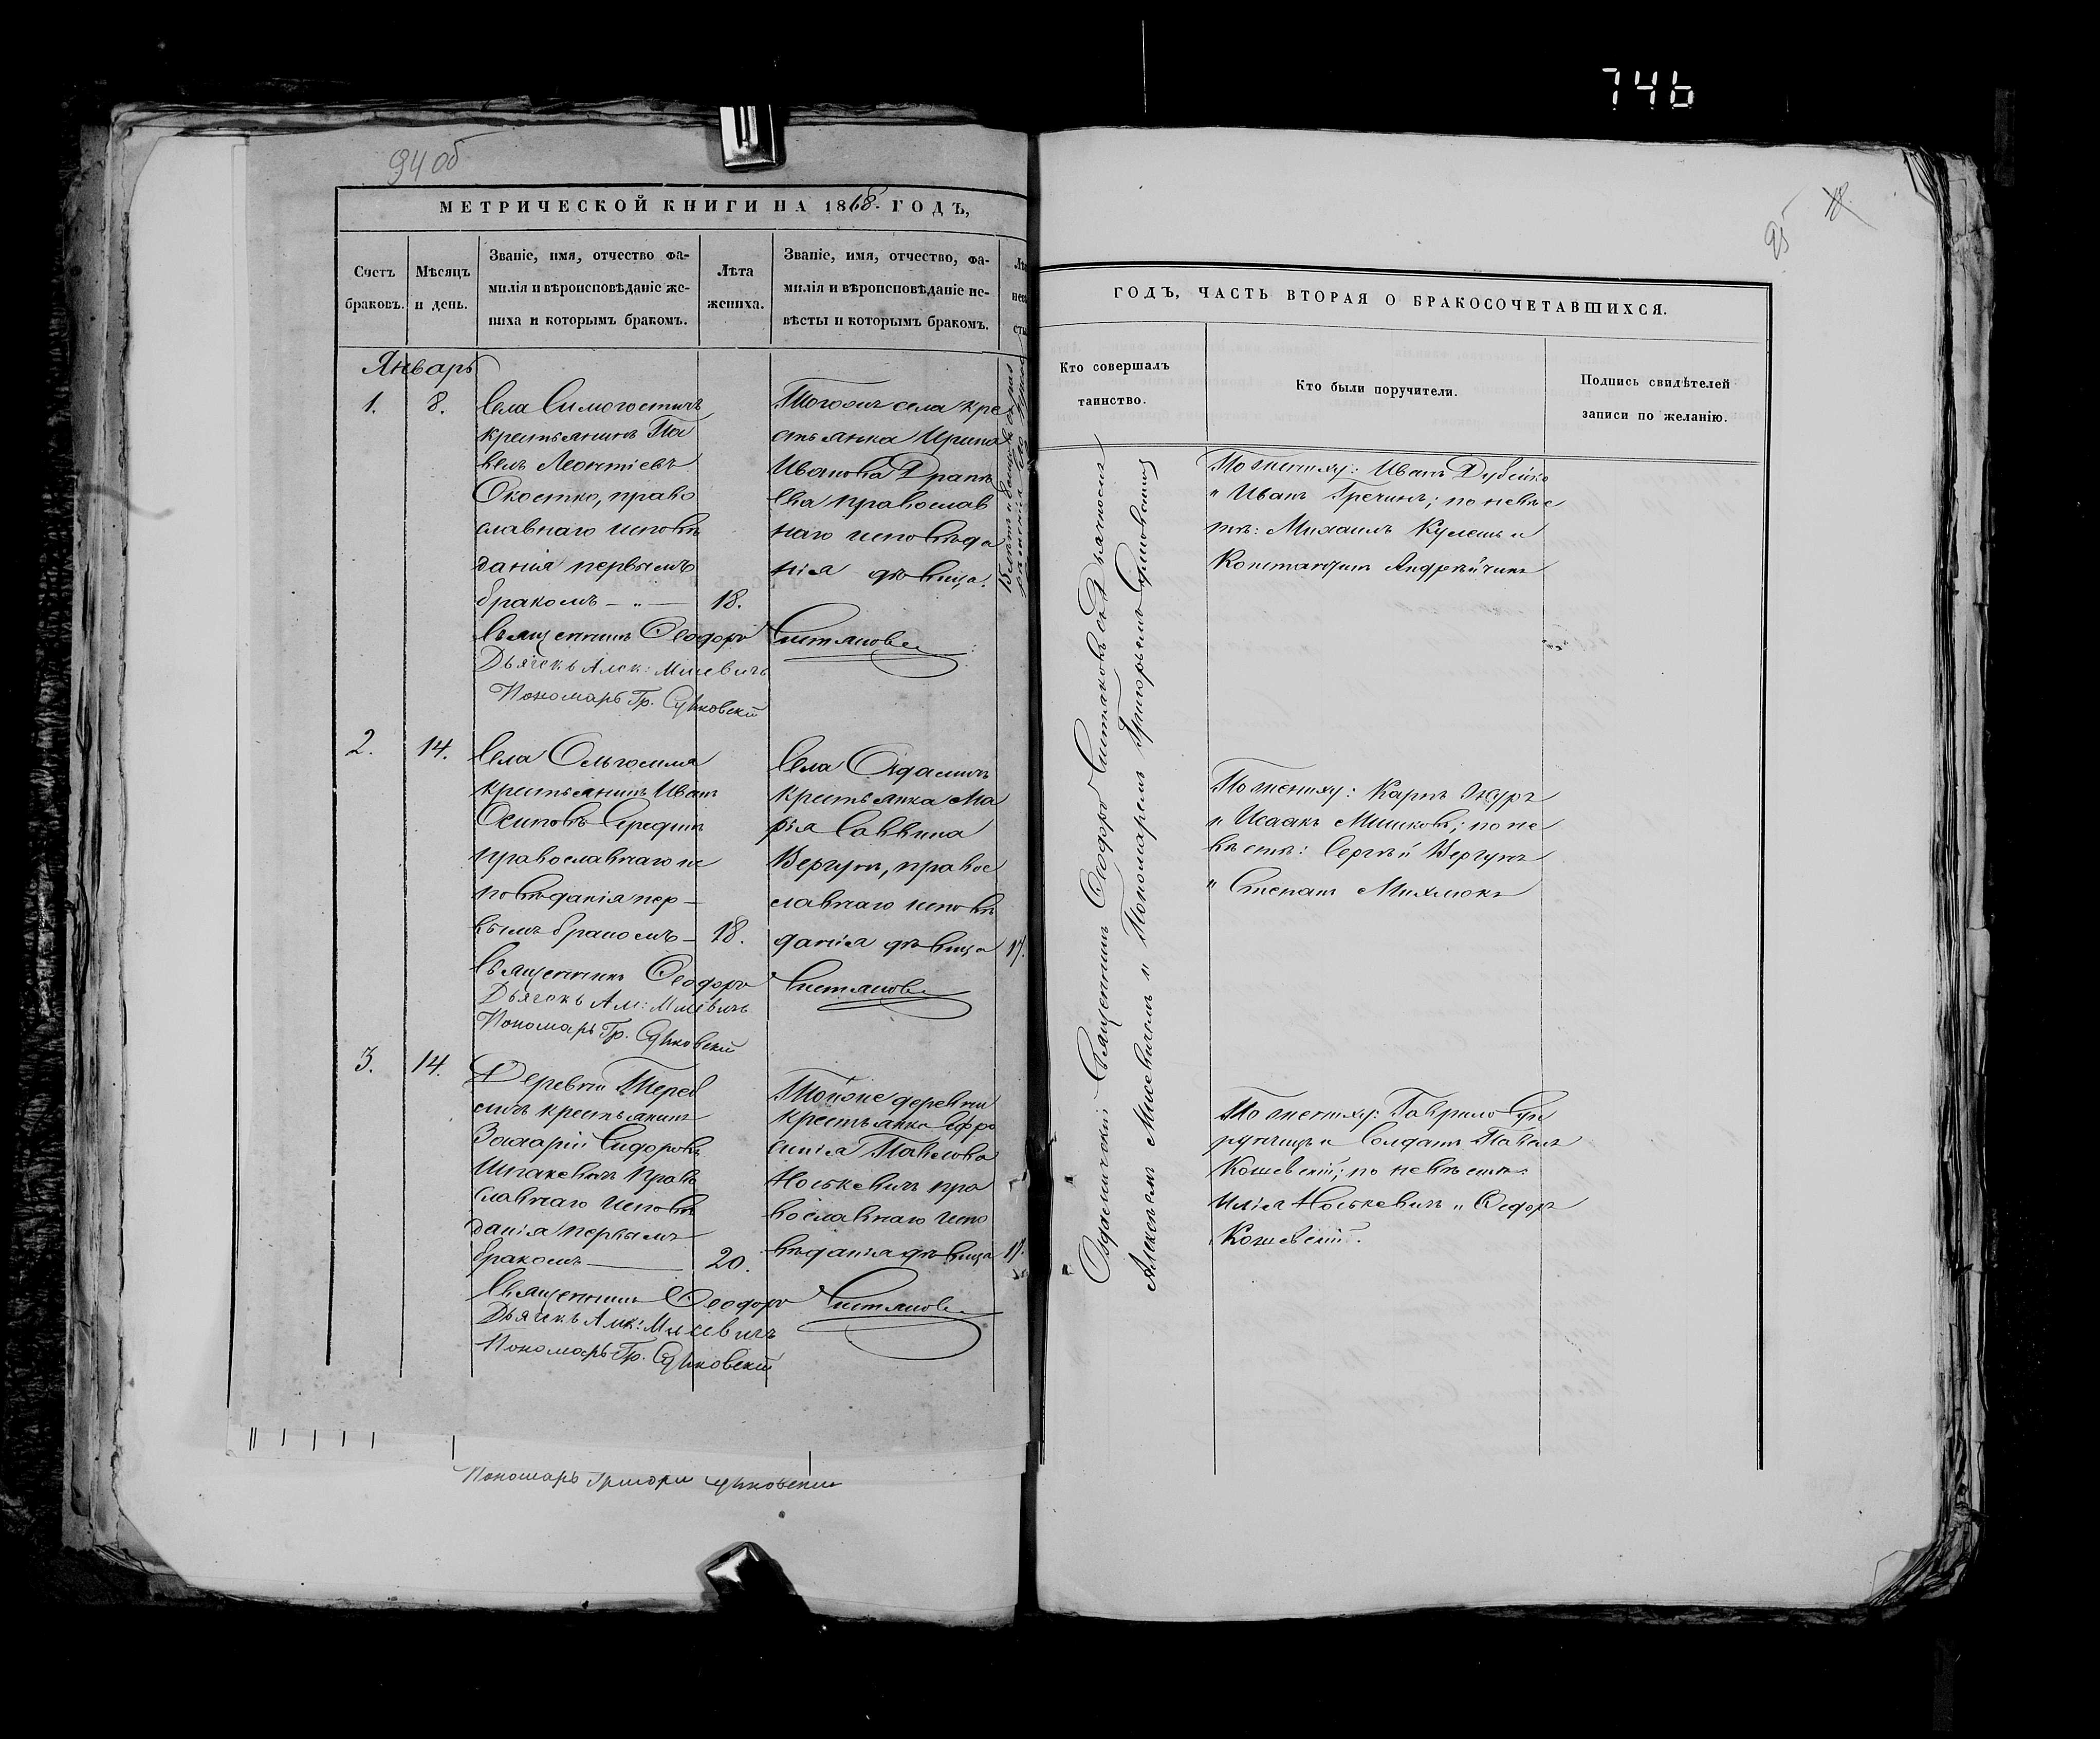 746
94 об
МЕТРИЧЕСКОЙ КНИГИ НА 1868 ГОДЪ,
Счетъ
браковъ.
Мѣсяцъ
и день.
Званіе, имя, отчество фа-
милія и вѣроисповѣданіе же-
ниха и которымъ бракомъ.
Лѣта
жениха.
Званіе, имя, отчество, фа-
милія и вѣроисповѣданіе не-
вѣсты и которымъ бракомъ.
Январь
1.
8.
Села Симогостичъ
крестьянинъ Па
велъ Леонтіевъ
Окостко, право
славнаго исповѣ
данія первымъ
бракомъ — „ —
18.
Тогожъ села кре
стьянка Ирина
Иванова
православ
наго исповѣда
нія дѣвица.
Священникъ Ѳеодоръ
Дьячекъ Алек: Мисевичъ
Пономарь Гр.
2.
14.
Села Ольгомля
крестьянинъ Иванъ
Осиповъ Середин
православнаго ис
повѣданія пер-
вымъ бракомъ —
18.
Села Оздамичъ
крестьянка Ма
рія Саввина
Вергунъ, правос
лавнаго исповѣ
данія дѣвица
17.
Священникъ Ѳеодоръ
Дьячекъ Ал: Мисевичъ
Пономарь Гр.
3.
14.
Деревни Тереб
личъ крестьянинъ
Захарій Сидоровъ
Шпакевичъ Право
славнаго исповѣ
данія первымъ
бракомъ —
20.
Тойже деревни
крестьянка Ефро
синія Павлова
Носькевичъ пра
вославнаго испо
вѣданія дѣвица
17.
Священникъ Ѳеодоръ
Дьячекъ Алек: Мисевичъ
Пономарь Гр.
Пономарь Григорій
95
ГОДЪ, ЧАСТЬ ВТОРАЯ О БРАКОСОЧЕТАВШИХСЯ.
Кто совершалъ
таинство.
Кто были поручители.
Подпись свидѣтелей
записи по желанію.
Оздамичскій Священникъ Ѳеодоръ съ Дьячкомъ
Алексѣемъ Мисевичемъ и Пономаремъ Григорьемъ
По жениху: Иванъ Дубейко
и Иванъ Гречинъ; по невѣс
тѣ: Михаилъ Кулешъ и
Константинъ Андрѣйчикъ
По жениху: Карпъ Журъ
и Исаакъ Мишковъ; по не
вѣстѣ: Сергѣй Вергунъ
и Степанъ Михлюкъ
По жениху: Гаврило
и Солдатъ Павелъ
Кошевскій; по невѣстѣ
Илія Носькевичъ и Ѳедоръ
Кошевскій.